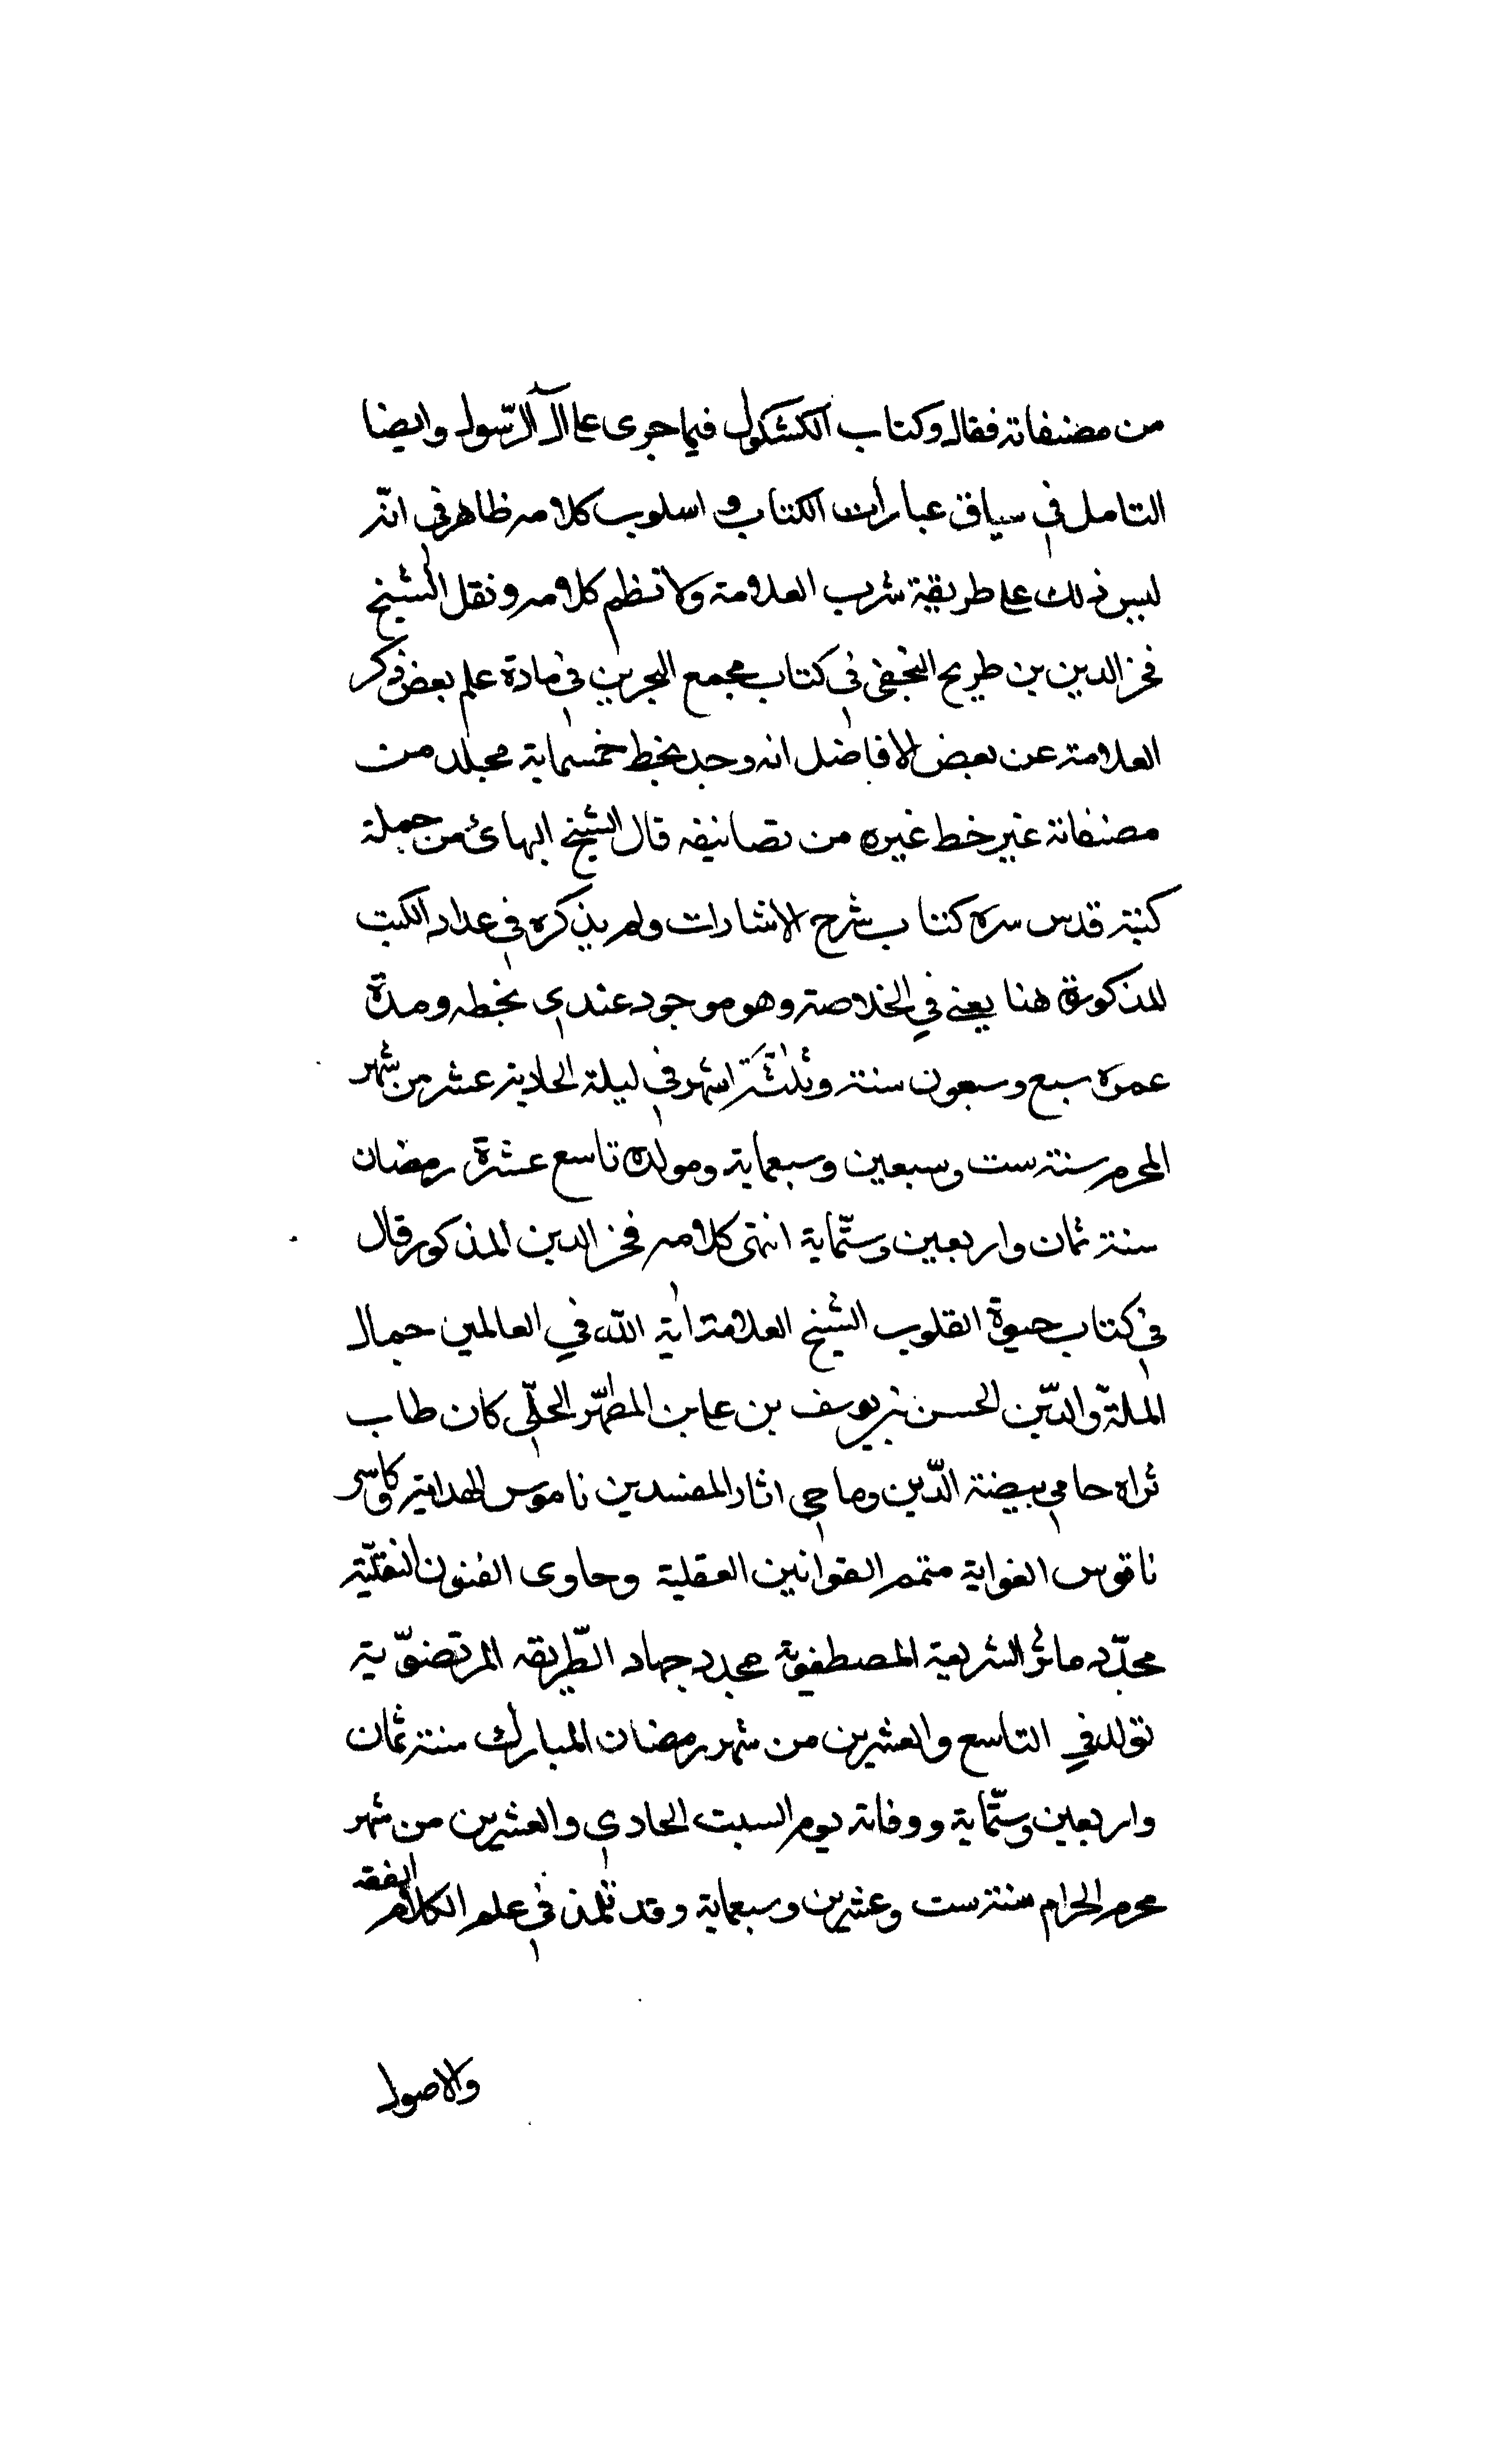 من مصنفاته فقال وكتاب الكشكول فيما جرى على آل الرّسول وايضا
التامل في سياق عبارات الكتاب و اسلوب كلامه ظاهر في انّه
ليس ذلك على طريقة شرب العلامة ولا نظم كلامه ونقل الشيخ
فخر الدين بن طريح النجفى في كتاب مجمع البحرين في مادة علم بعض ذكر
العلامة عن بعض الافاضل انه وجد بخطه خمسماية مجلد من
مصنفاته غير خط غيره من تصانيفه قال الشيخ البهائ من جملة
كتبه قدس سره كتاب شرح الاشارات ولم يذكره في عداد الكتب
المذكورة هنا يعنى في الخلاصة وهو موجود عندي بخطه ومدة
عمره سبع وسبعون سنة وثلثة اشهر في ليلة الحادية عشر من شهر
المحرم سنة ست وسبعين وسبعماية ومولده تاسع عشرة رمضان
سنة ثمان واربعين وستّماية انتهى كلامه فخر الدين المذكور قال
في كتاب حيوة القلوب الشيخ العلامة اية الله في العالمين جمال
الملة والدّين الحسن بن يوسف بن على بن المطهّر الحلّي كان طاب
ثراه حامي بيضة الدّين وماحي اثار المفسدين ناموس الهداية وكاسر
ناقوس الغواية متمم القوانين العقلية وحاوى الفنون النقليّة
مجدّد ماثر الشريعة المصطفوية مجدد جهاد الطّريقه المرتضوّية
تولد في التاسع والعشرين من شهر رمضان المبارك سنة ثمان
واربعين وستّماية ووفاته يوم السبت الحادي والعشرين من شهر
محرم الحرام سنة ست وعشرين وسبعماية وقد تلمذ في علم الكلام الفقه
والاصول